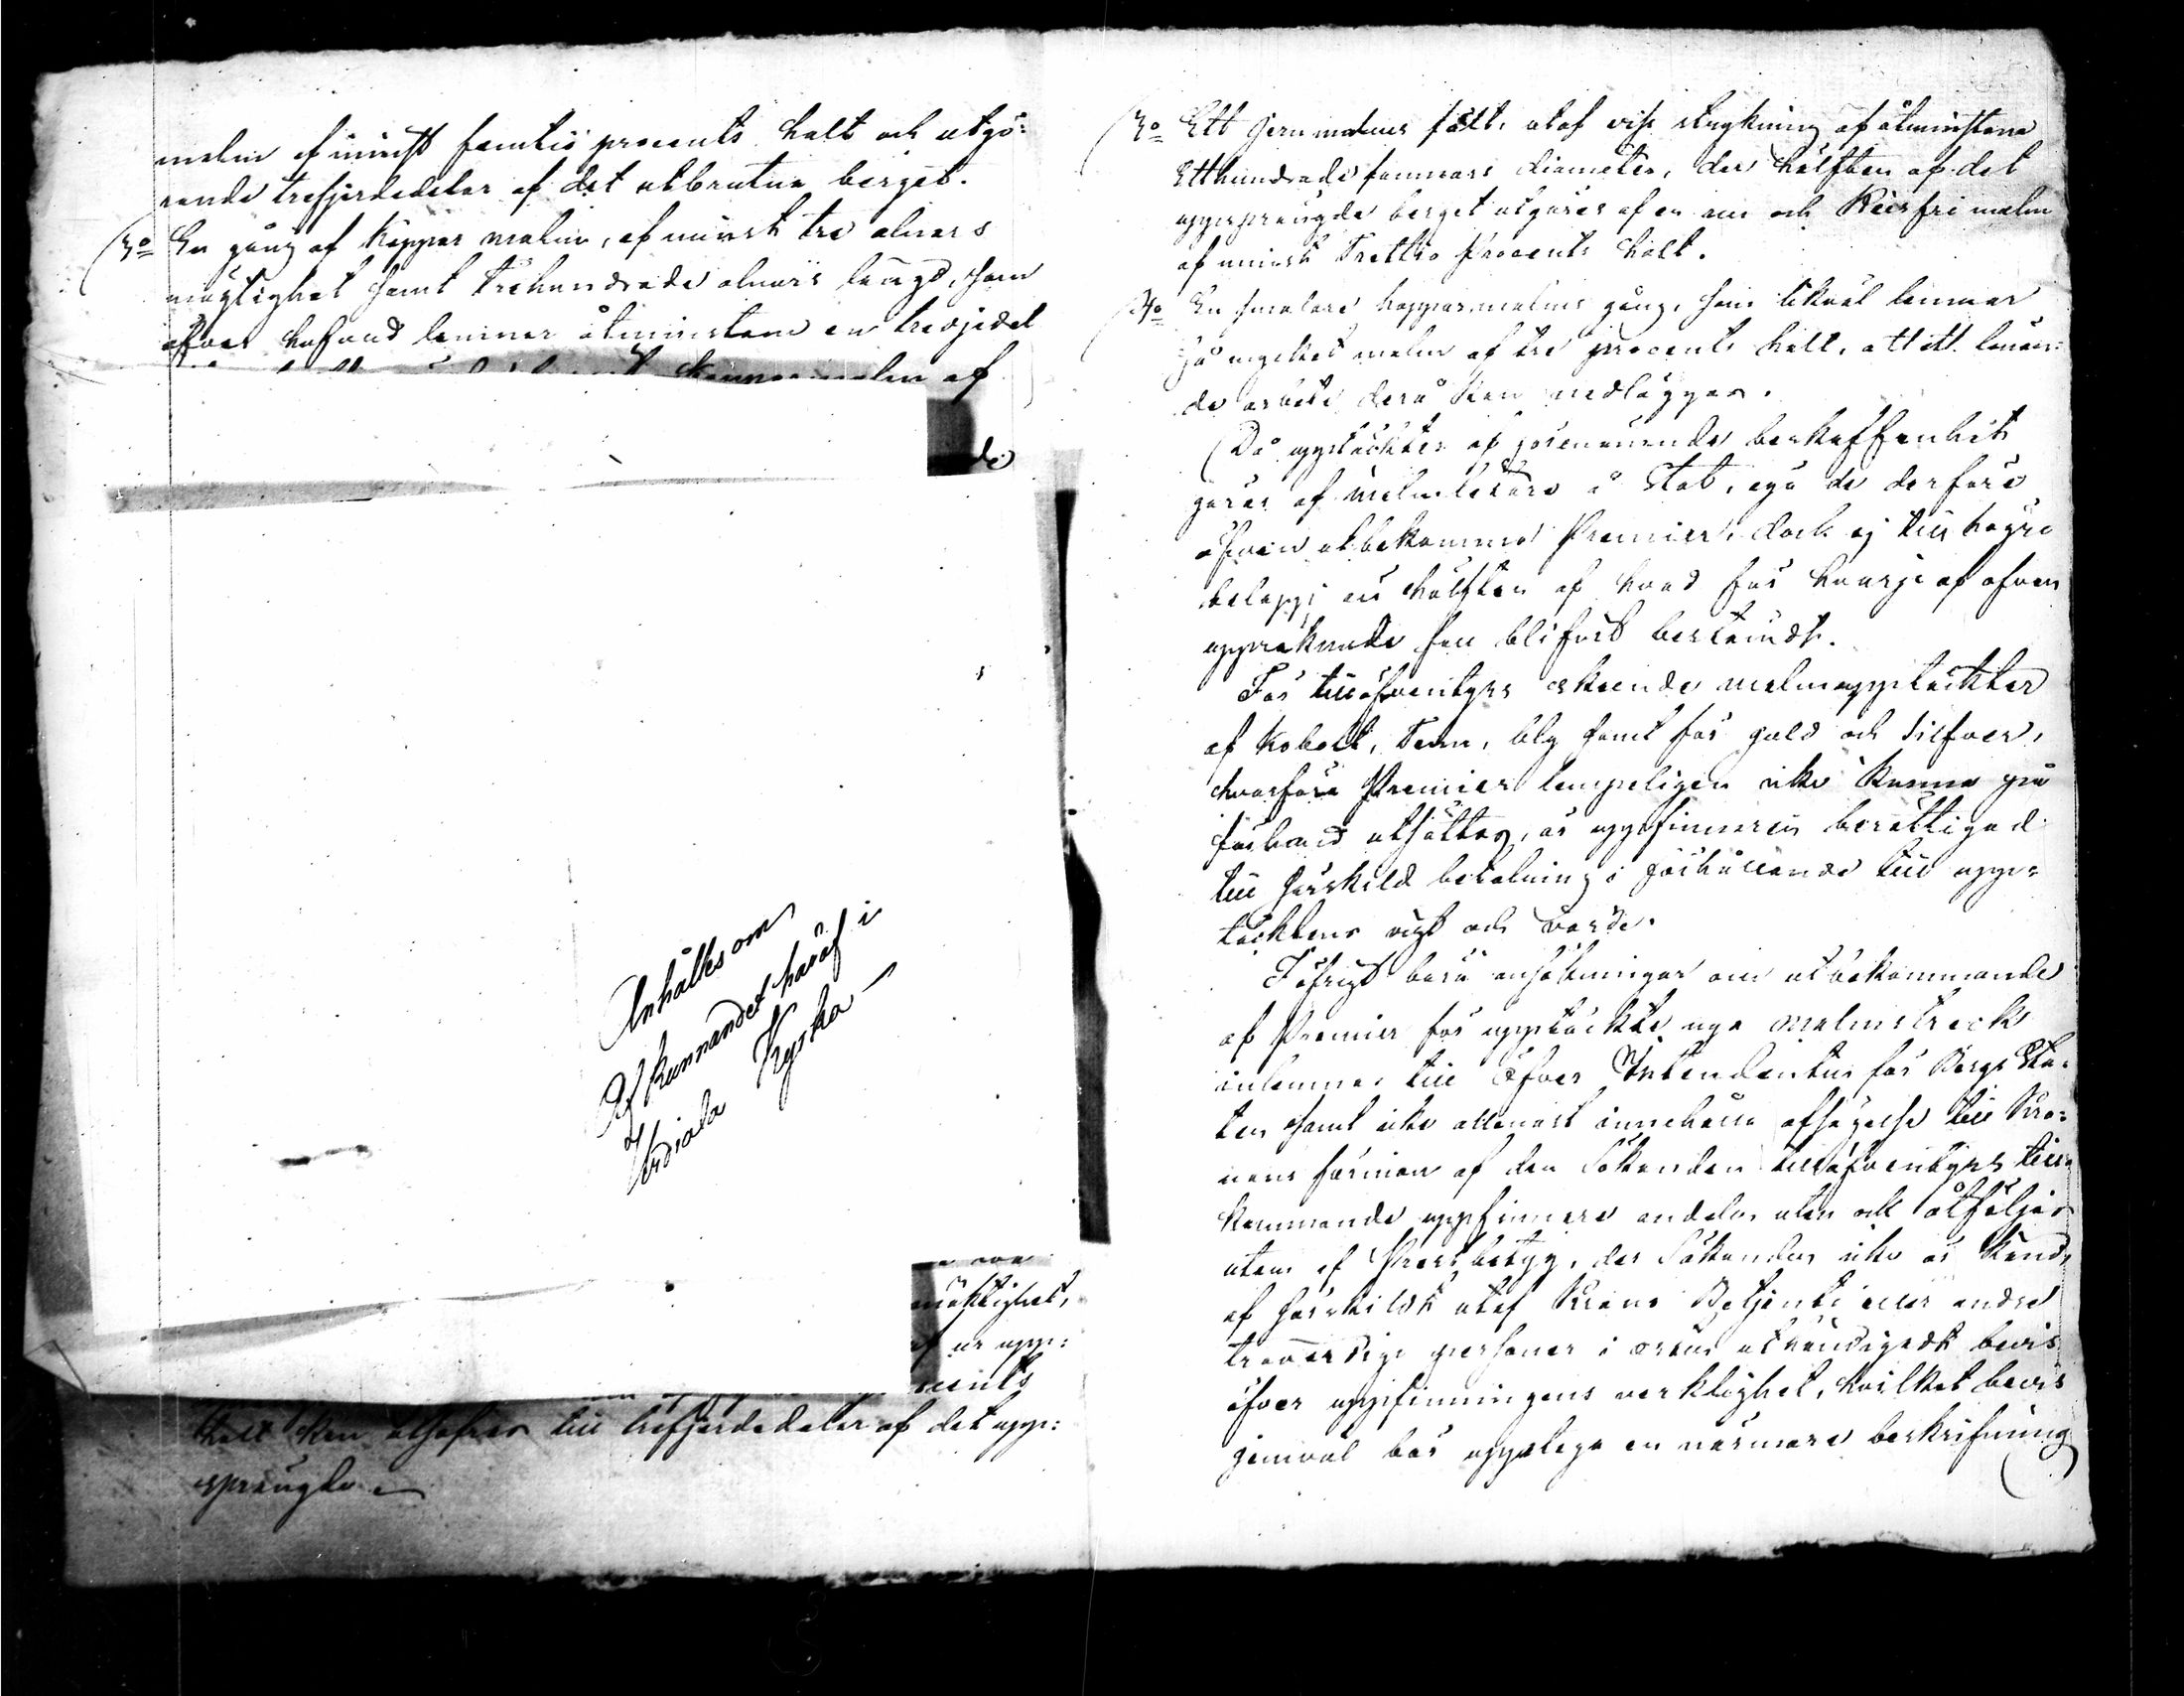 malm af minst femtio procents halt och utgö=
rande trefjerdedelar af det utbrutna berget.
3:o En gång af Koppar malm, af minst tre alnars
mägtighet samt trehundrade alnars längd, som
öfver hufvud lemnar åtminstone en tredjedel
Kopparmalm af
de
Anhålles om
Afkunnandet häraf i
Urdiala Kyrka
mäktighet,
af upp=
cents
halt kan utsofras till trefjerdedelar af det upp=
sprängda
3:o Ett Jern malms fält, utaf viss strykning af åtminstone
Etthundrade famnars diameter, der hälften af det
uppsprängda berget utgöres af en ren och Kiisfri malm
af minst Trettio Procents halt.
4:o En smalare kopparmalms gång, som likväl lemnar
så mycket malm af tre procents halt, att ett lönan=
de arbete derå kan nedläggas.
Då upptäckter af förenämnde beskaffenhet
göras af malmletare å Stat, ega de derföre
äfven utbekomma Premier, dock ej till högre
belopp, än hälften af hvad för hvarje af ofvan
uppräknade fall blifvit bestämdt.
För till äfventyrs skeende malmupptäckter
af Kobolt, Tenn, bly samt för guld och silfver,
hvarföre Premier lämpeligen icke kunna på
förhand utsättas, är uppfinnaren berättigad
till särskild betalning i förhållande till upp=
täcktens vigt och värde.
I öfrigt böra ansökningar om utbekommande
af Premier för upptäckte nya malmstreck
inlemnas till Öfver Intendenten för Bergs Sta=
ten samt icke allenast innehålla afsägelse till Kro=
nans förmån af den Sökanden till äfventyrs till=
kommande uppfinnare andelar utan ock åtföljas
utom af Prestbetyg, der Sökanden icke är känd,
af särskildt utaf Krono Betjente eller andre
trovärdige personer i orten utfärdigadt bevis
öfver uppfinningens verklighet, hvilket bevis
jemväl bör upptaga en närmare beskrifning